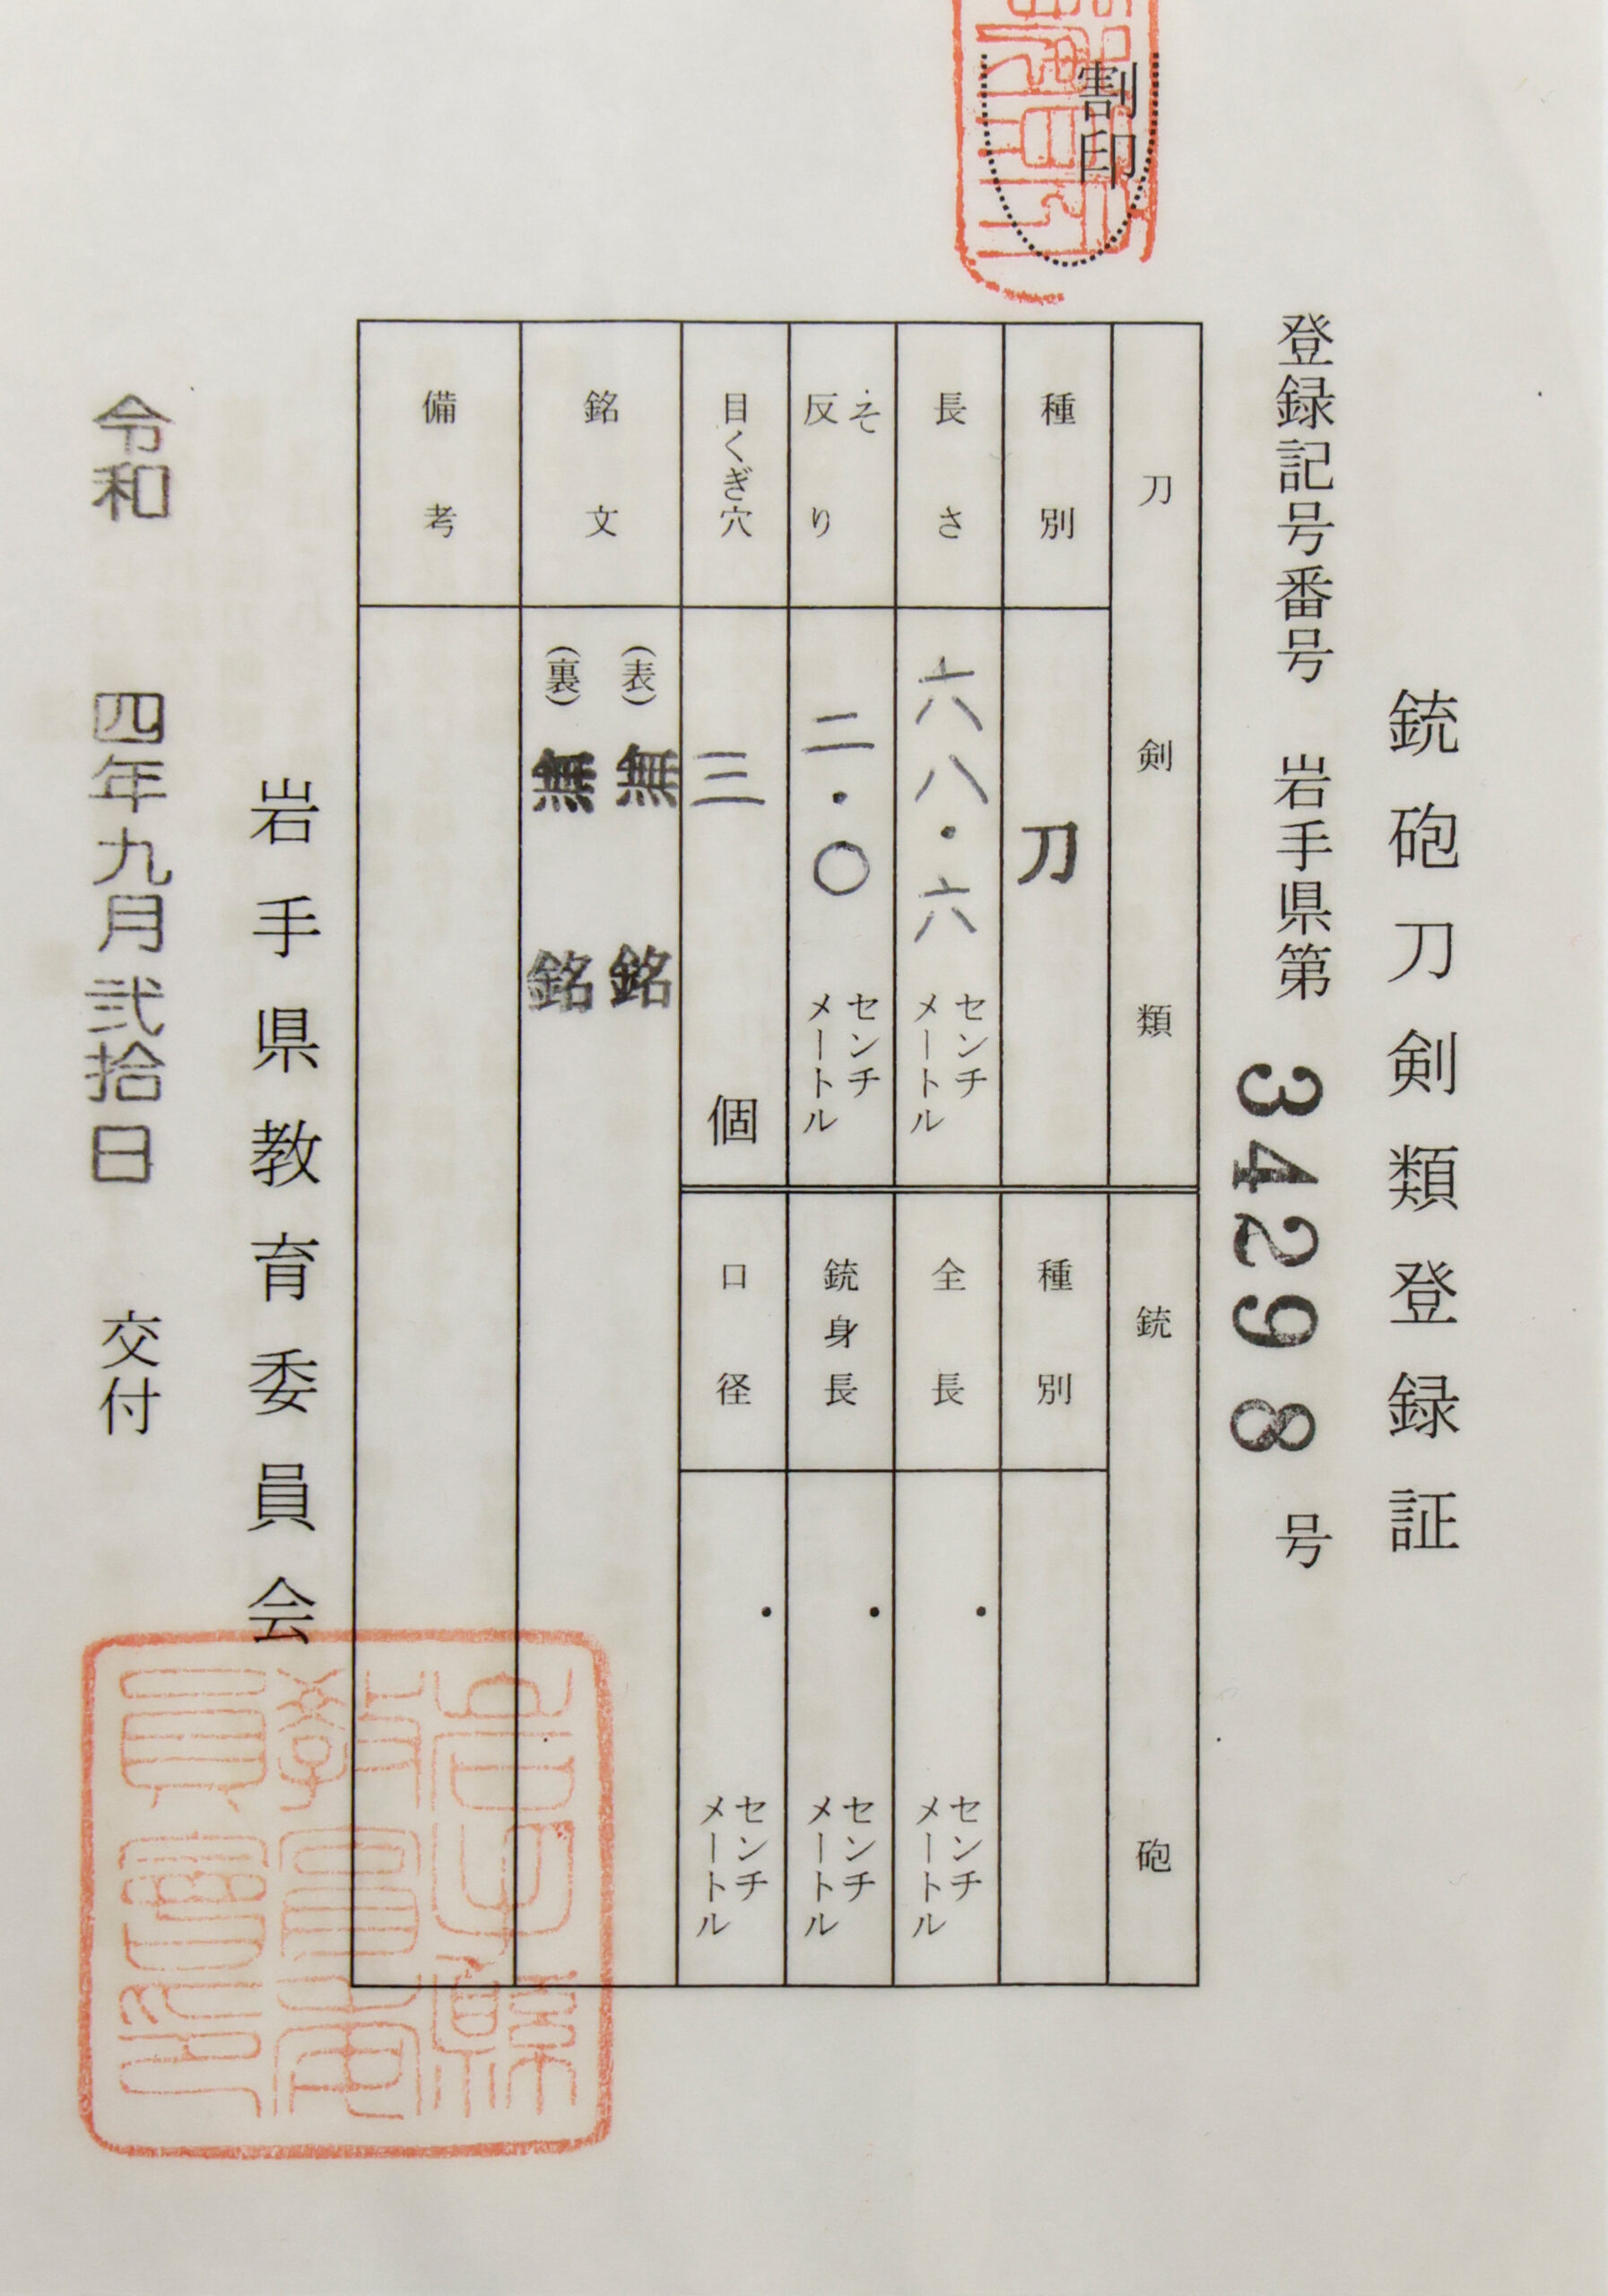 銃砲刀剣類登録証
登録記号番号 岩手県第 34298 号
割印
刀剣類
種別 刀
長さ 六八・六 センチメートル
反り そ 二・〇 センチメートル
目くぎ穴 三 個
銃砲
種別
全長 ・ センチメートル
銃身長 ・ センチメートル
口径 ・ センチメートル
銘文
(表) 無銘
(裏) 無銘
備考
岩手県教育委員会
令和 四年九月弐拾日 交付
岩手縣
教育委
員會印